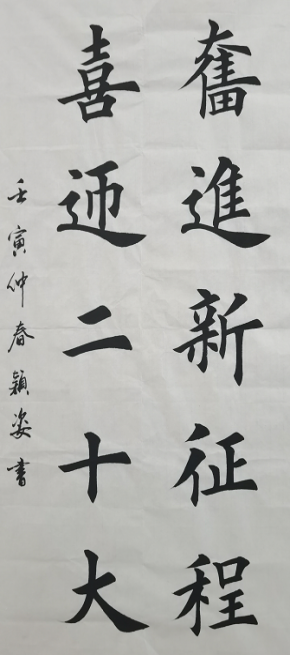 奮進新征程
喜迎二十大
壬寅仲春穎姿書